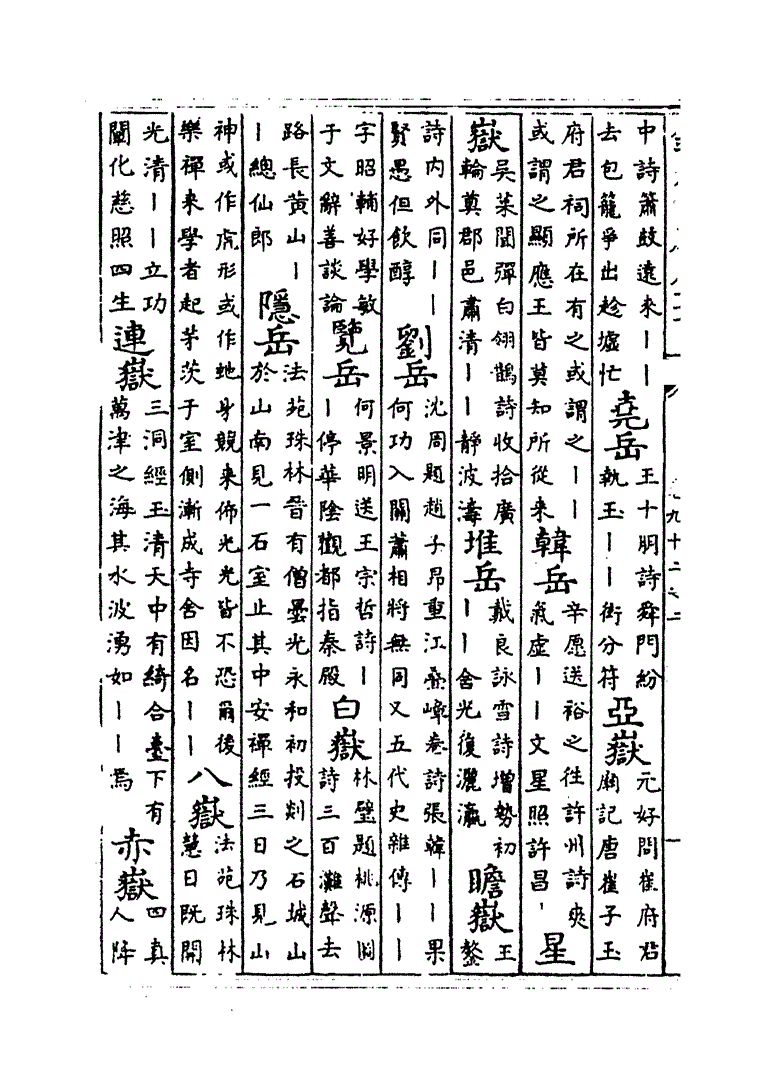 中詩簫鼓遠來丨丨
去包籠爭出趁墟忙
堯岳
王十朋詩舜門紛
執玉丨丨銜分符
亞嶽
元好問崔府君
廟記唐崔子玉
府君祠所在有之或謂之丨丨
或謂之顯應王皆莫知所從來
韓岳
辛愿送裕之往許州詩爽
氣虛丨丨文星照許昌
星
嶽
吳萊聞彈白翎鵲詩收拾廣
輪奠郡邑肅清丨丨靜波濤
堆岳
戴良詠雪詩增勢初
丨丨舍光復灑瀛
瞻嶽
王
鏊
詩內外同丨丨
賢愚但飲醇
劉岳
沈周題趙子昂重江疊嶂卷詩張韓丨丨果
何功入關蕭相將無同又五代史雜傳丨丨
字昭輔好學敏
于文辭善談論
覽岳
何景明送王宗哲詩丨
丨停華陰觀都指秦殿
白嶽
林璧題桃源圖
詩三百灘聲去
路長黃山丨
丨總仙郎
隱岳
法苑珠林晉有僧曇光永和初投剡之石城山
於山南見一石室止其中安禪經三日乃見山
神或作虎形或作虵身競來怖光光皆不恐爾後
樂禪來學者起茅茨于室側漸成寺舍因名丨丨
八嶽
法苑珠林
慧日既開
光清丨丨立功
闡化慈照四生
連嶽
三洞經玉清天中有綺合臺下有
萬津之海其水波湧如丨丨焉
赤嶽
四真
人降